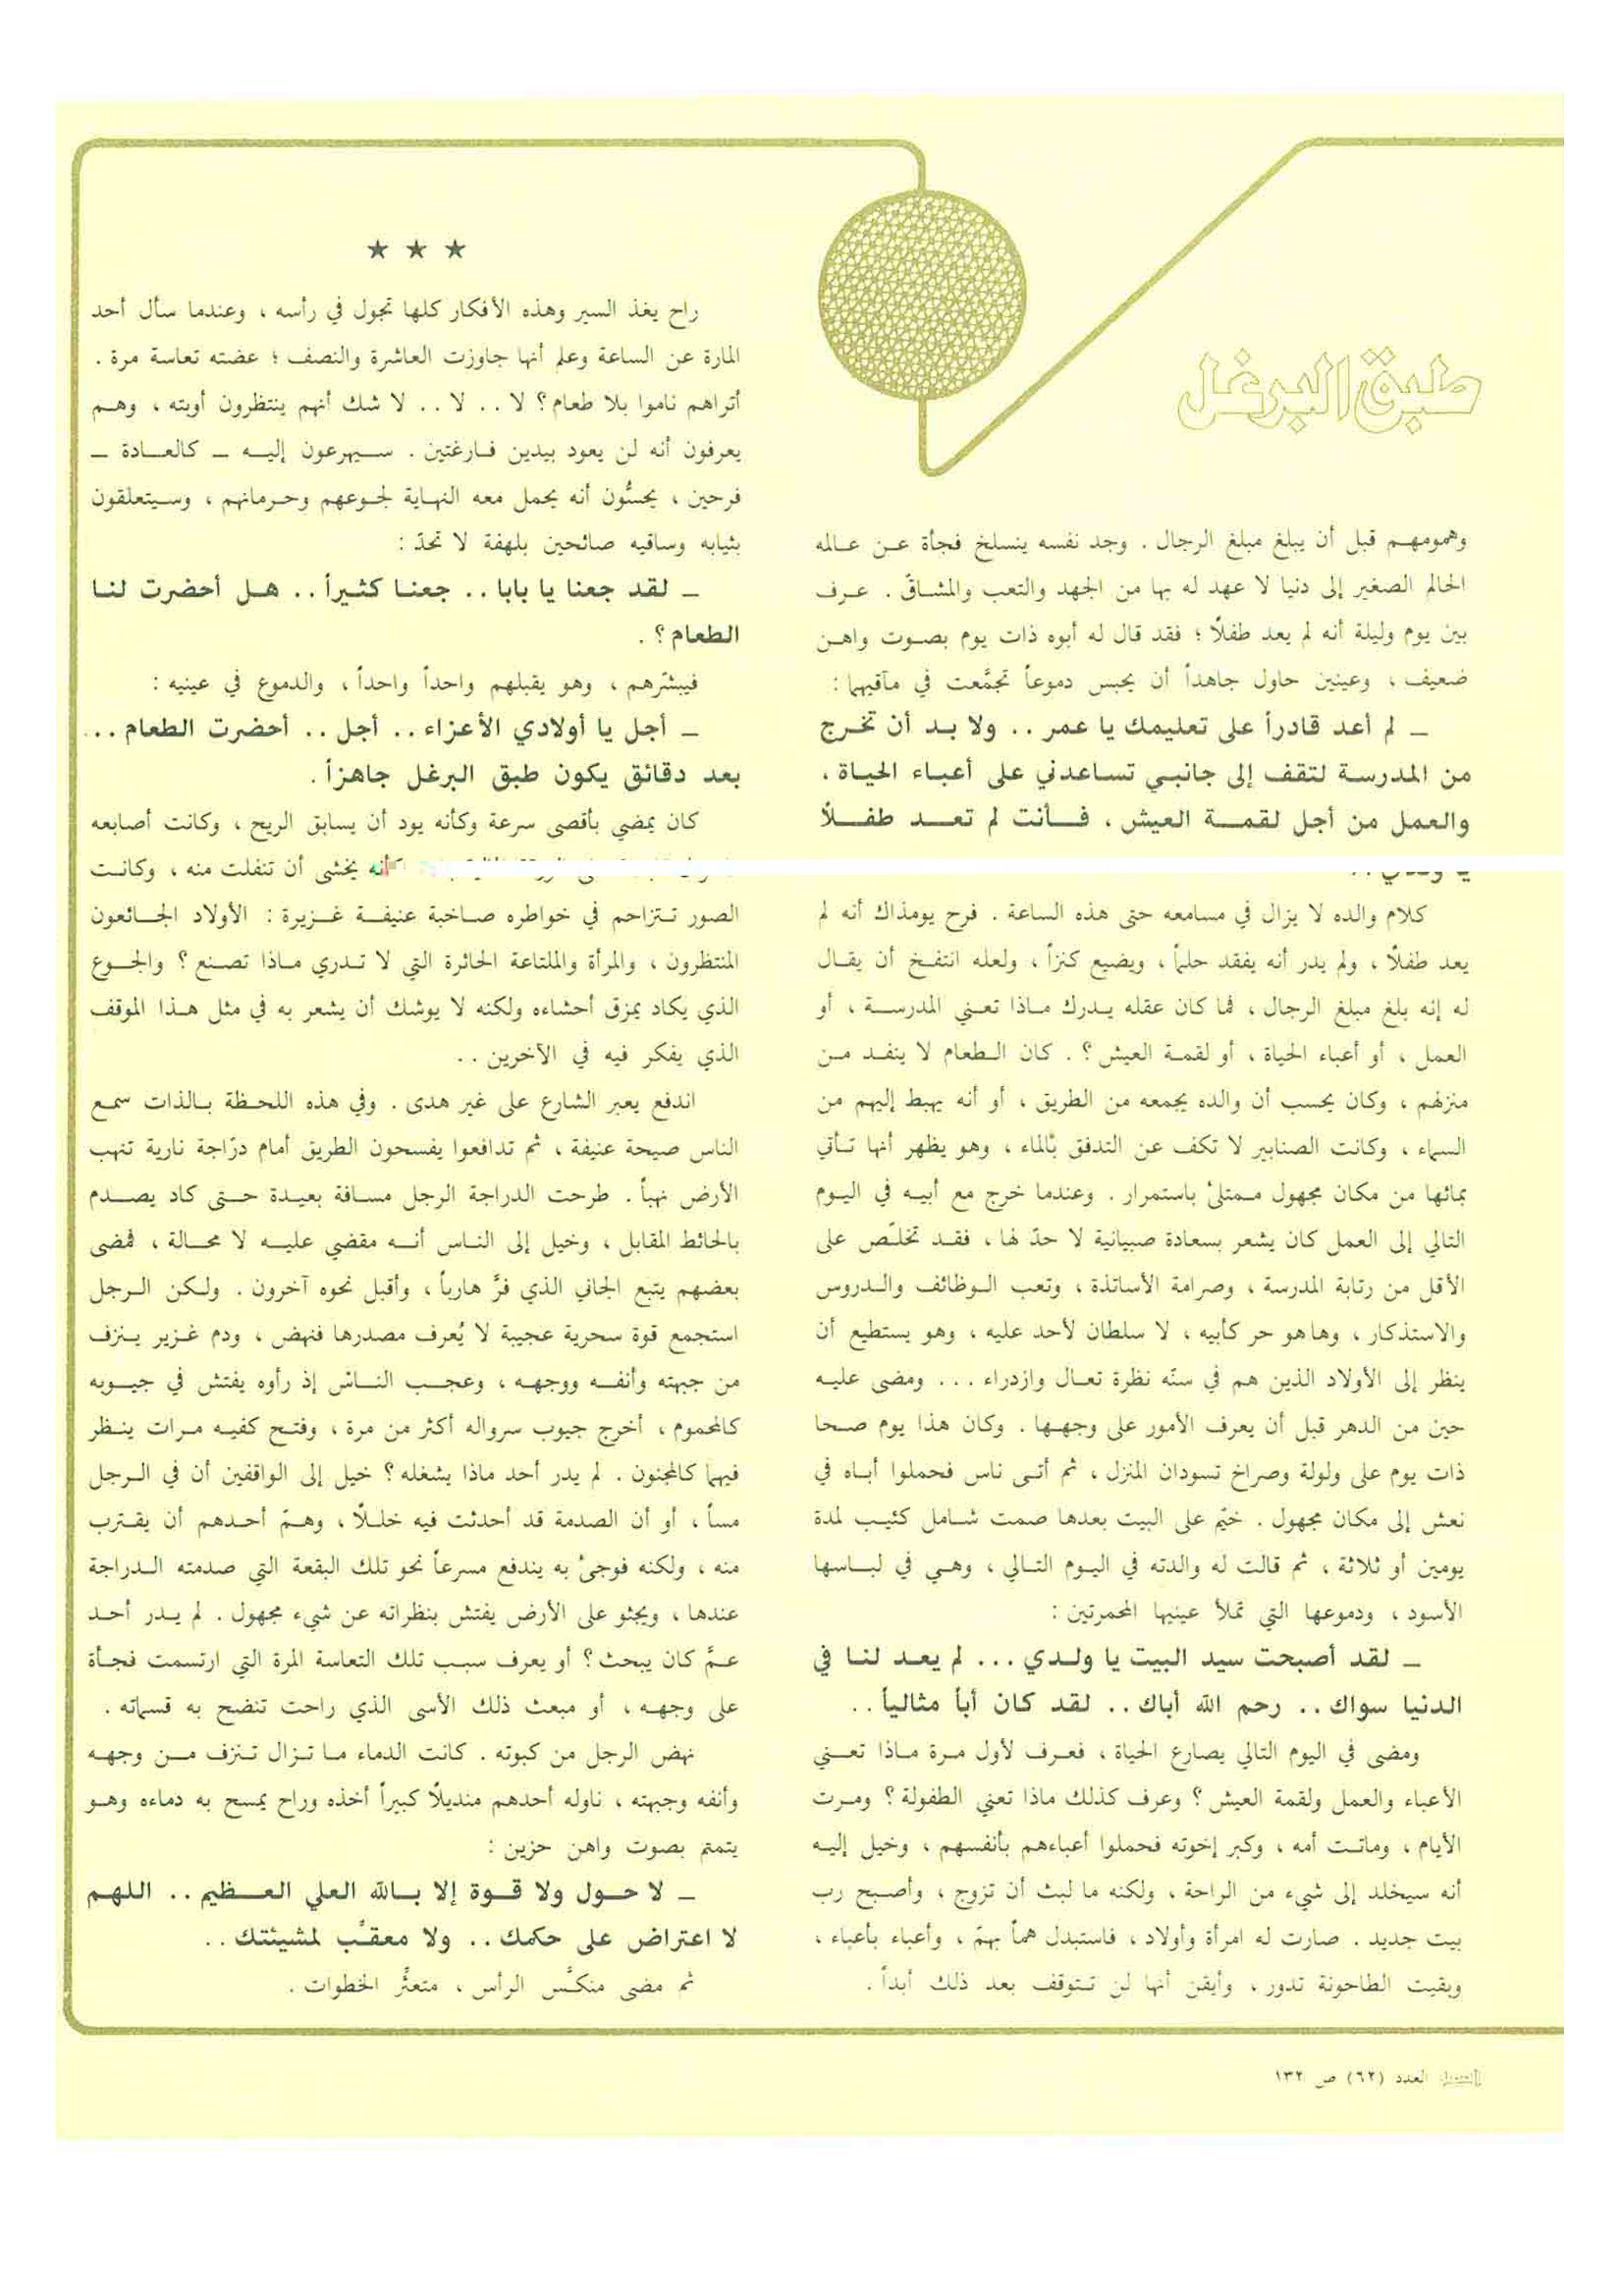 طبق البرغل
وهمومهم قبل أن يبلغ مبلغ الرجال . وجد نفسه ينسلخ فجأة عن عالمه
الحالم الصغير إلى دنيا لا عهد له بها من الجهد والتعب والمشاقّ . عرف
بين يوم وليلة أنه لم يعد طفلًا ؛ فقد قال له أبوه ذات يوم بصوت واهن
ضعيف ، وعينين حاول جاهداً أن يحبس دموعاً تجمَّعت في مآقيهما :
ـ لم أعد قادراً على تعليمك يا عمر .. ولا بد أن تخرج
من المدرسة لتقف إلى جانبي تساعدني على أعباء الحياة ،
والعمل من أجل لقمة العيش ، فأنت لم تعد طفلاً
كلام والده لا يزال في مسامعه حتى هذه الساعة . فرح يومذاك أنه لم
يعد طفلًا ، ولم يدر أنه يفقد حلماً ، ويضيع كنزاً ، ولعله انتفخ أن يقال
له إنه بلغ مبلغ الرجال ، فما كان عقله يدرك ماذا تعني المدرسة ، أو
العمل ، أو أعباء الحياة ، أو لقمة العيش ؟ . كان الطعام لا ينفد من
منزلهم ، وكان يحسب أن والده يجمعه من الطريق ، أو أنه يهبط إليهم من
السماء ، وكانت الصنابير لا تكف عن التدفق بالماء ، وهو يظهر أنها تأتي
بمائها من مكان مجهول ممتلئ باستمرار . وعندما خرج مع أبيه في اليوم
التالي إلى العمل كان يشعر بسعادة صبيانية لا حدّ لها ، فقد تخلّص على
الأقل من رتابة المدرسة ، وصرامة الأساتذة ، وتعب الوظائف والدروس
والاستذكار ، وهاهو حر كأبيه ، لا سلطان لأحد عليه ، وهو يستطيع أن
ينظر إلى الأولاد الذين هم في سنّه نظرة تعال وازدراء ... ومضى عليه
حين من الدهر قبل أن يعرف الأمور على وجهها . وكان هذا يوم صحا
ذات يوم على ولولة وصراخ تسودان المنزل ، ثم أتى ناس فحملوا أباه في
نعش إلى مكان مجهول . خيّم على البيت بعدها صمت شامل كئيب لمدة
يومين أو ثلاثة ، ثم قالت له والدته في اليوم التالي ، وهي في لباسها
الأسود ، ودموعها التي تملأ عينيها المحمرتين :
ـ لقد أصبحت سيد البيت يا ولدي ... لم يعد لنا في
الدنيا سواك .. رحم الله أباك .. لقد كان أباً مثالياً ..
ومضى في اليوم التالي يصارع الحياة ، فعرف لأول مرة ماذا تعني
الأعباء والعمل ولقمة العيش ؟ وعرف كذلك ماذا تعني الطفولة ؟ ومرت
الأيام ، وماتت أمه ، وكبر إخوته فحملوا أعباءهم بأنفسهم ، وخيل إليه
أنه سيخلد إلى شيء من الراحة ، ولكنه ما لبث أن تزوج ، وأصبح رب
بيت جديد . صارت له امرأة وأولاد ، فاستبدل هماً بهمّ ، وأعباء بأعباء ،
وبقيت الطاحونة تدور ، وأيقن أنها لن تتوقف بعد ذلك أبداً .
★ ★ ★
راح يغذ السير وهذه الأفكار كلها تجول في رأسه ، وعندما سأل أحد
المارة عن الساعة وعلم أنها جاوزت العاشرة والنصف ؛ عضته تعاسة مرة .
أتراهم ناموا بلا طعام ؟ لا .. لا .. لا شك أنهم ينتظرون أوبته ، وهم
يعرفون أنه لن يعود بيدين فارغتين . سيهرعون إليه ـ كالعادة ـ
فرحين ، يحسُّون أنه يحمل معه النهاية لجوعهم وحرمانهم ، وسيتعلقون
بثيابه وساقيه صائحين بلهفة لا تحدّ :
ـ لقد جعنا يا بابا .. جعنا كثيراً .. هل أحضرت لنا
الطعام ؟ .
فيبشّرهم ، وهو يقبلهم واحداً واحداً ، والدموع في عينيه :
ـ أجل يا أولادي الأعزاء .. أجل .. أحضرت الطعام ..
بعد دقائق يكون طبق البرغل جاهزاً .
كان يمضي بأقصى سرعة وكأنه يود أن يسابق الريح ، وكانت أصابعه
كأنه يخشى أن تنفلت منه ، وكانت
الصور تتزاحم في خواطره صاخبة عنيفة غزيرة : الأولاد الجائعون
المنتظرون ، والمرأة والملتاعة الحائرة التي لا تدري ماذا تصنع ؟ والجوع
الذي يكاد يمزق أحشاءه ولكنه لا يوشك أن يشعر به في مثل هذا الموقف
الذي يفكر فيه في الآخرين ..
اندفع يعبر الشارع على غير هدى . وفي هذه اللحظة بالذات سمع
الناس صيحة عنيفة ، ثم تدافعوا يفسحون الطريق أمام درّاجة نارية تنهب
الأرض نهباً . طرحت الدراجة الرجل مسافة بعيدة حتى كاد يصدم
بالحائط المقابل ، وخيل إلى الناس أنه مقضي عليه لا محالة ، فمضى
بعضهم يتبع الجاني الذي فرَّ هارباً ، وأقبل نحوه آخرون . ولكن الرجل
استجمع قوة سحرية عجيبة لا يُعرف مصدرها فنهض ، ودم غزير ينزف
من جبهته وأنفه ووجهه ، وعجب الناس إذ رأوه يفتش في جيوبه
كالمحموم ، أخرج جيوب سرواله أكثر من مرة ، وفتح كفيه مرات ينظر
فيهما كالمجنون . لم يدر أحد ماذا يشغله ؟ خيل إلى الواقفين أن في الرجل
مساً ، أو أن الصدمة قد أحدثت فيه خللًا ، وهمّ أحدهم أن يقترب
منه ، ولكنه فوجئ به يندفع مسرعاً نحو تلك البقعة التي صدمته الدراجة
عندها ، ويجثو على الأرض يفتش بنظراته عن شيء مجهول . لم يدر أحد
عمَّ كان يبحث ؟ أو يعرف سبب تلك التعاسة المرة التي ارتسمت فجأة
على وجهه ، أو مبعث ذلك الأسى الذي راحت تنضح به قسماته .
نهض الرجل من كبوته . كانت الدماء ما تزال تنزف من وجهه
وأنفه وجبهته ، ناوله أحدهم منديلًا كبيراً أخذه وراح يمسح به دماءه وهو
يتمتم بصوت واهن حزين :
ـ لا حول ولا قوة إلا بالله العلي العظيم .. اللهم
لا اعتراض على حكمك .. ولا معقّب لمشيئتك ..
ثم مضى منكَّس الرأس ، متعثِّر الخطوات .
العدد (٦٢) ص ١٣٢